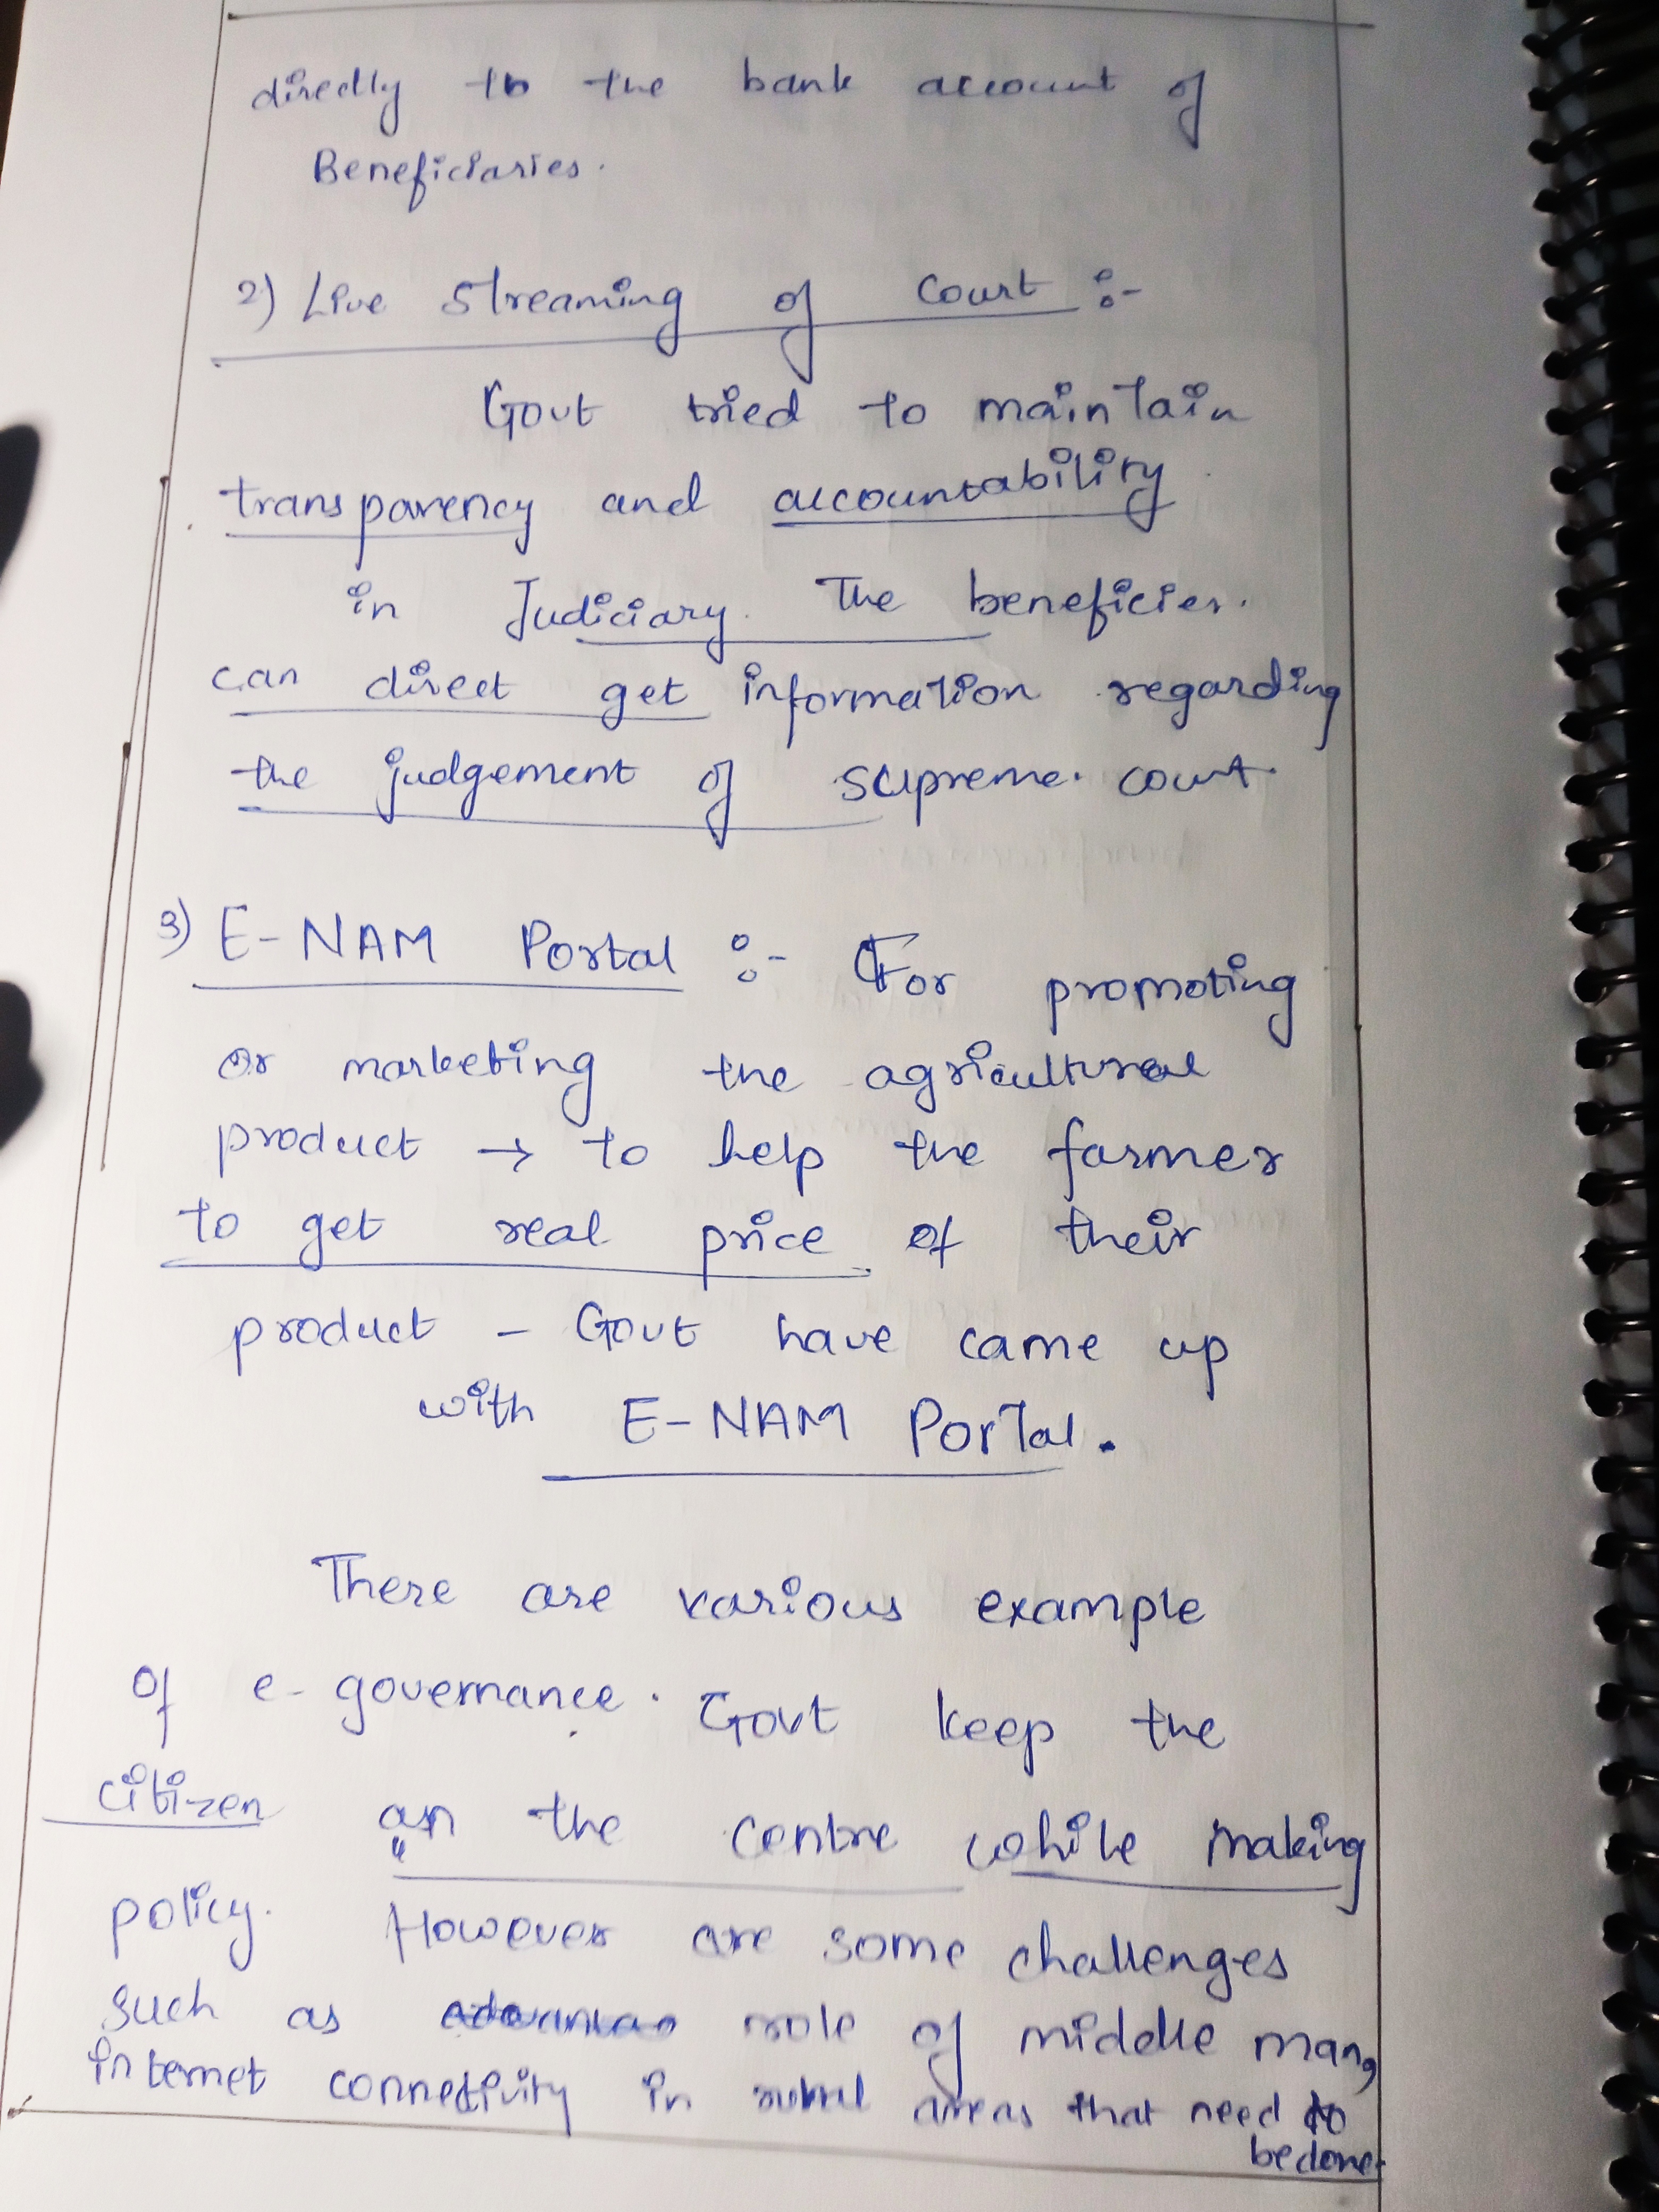 directly to the bank account of
Beneficiaries.
2) Live streaming of court :-
Govt tried to maintain
transparency and accountability
in Judiciary. The beneficier.
can direct get information regarding
the judgement of supreme. court.
3) E-NAM Portal :- For promoting
or marketing the agricultural
product → to help the farmer
to get real price of their
product - Govt have came up
with E-NAM Portal.
There are various example
of e-governance. Govt keep the
citizen the centre while making
policy. However are some challenges
such as role of middle man,
internet connectivity in areas that need to
be done.